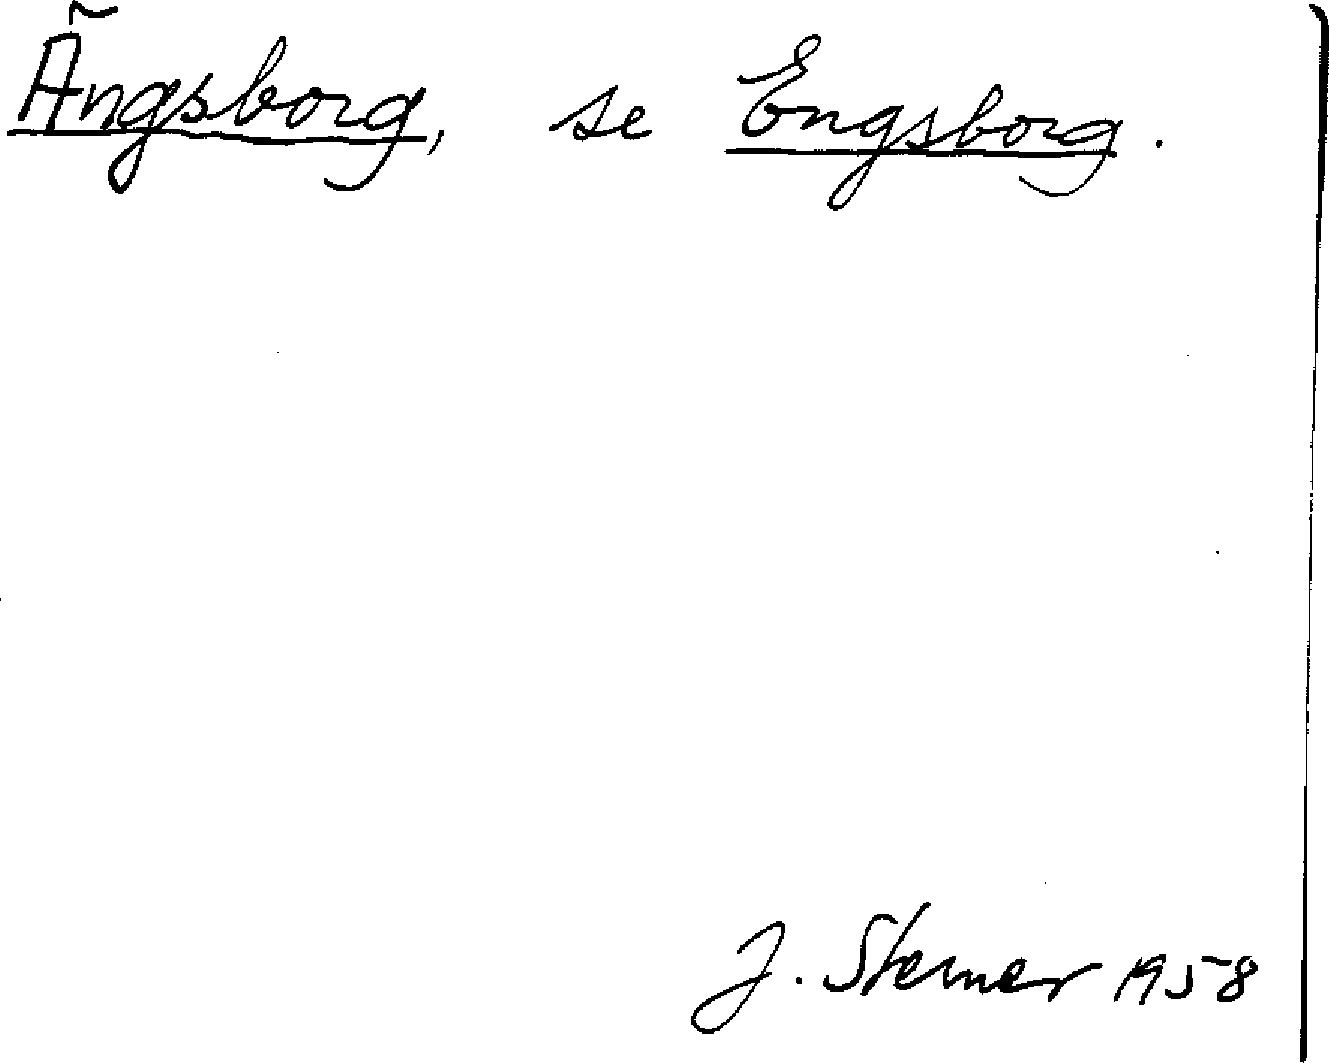 Ängsborg, se Engsborg.
J. Sterner 1958